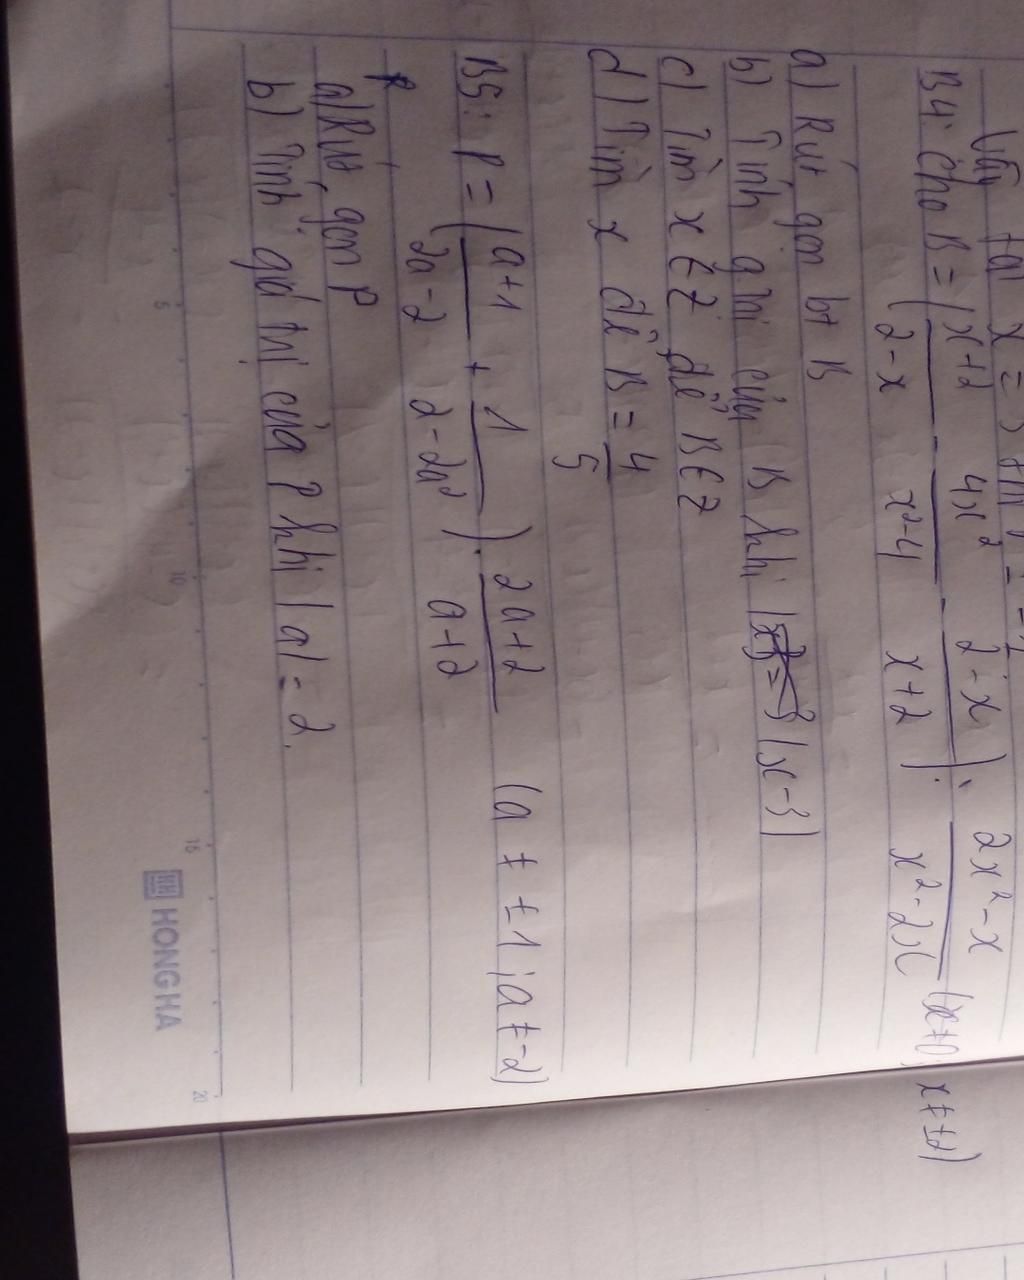 Vậy tại x = 3 thì
B4: Cho B = (x+2 / 2-x - 4x² / x²-4 - 2-x / x+2) : 2x²-x / x²-2x (x≠0; x≠±2)
a) Rút gọn bt B
b) Tính g trị của B khi |x-3|
c) Tìm x ∈ Z để B ∈ Z
d) Tìm x để B = 4/5
B5: P = (a+1 / 2a-2 + 1 / 2-2a²) . 2a+2 / a+2 (a ≠ ±1; a ≠ -2)
a) Rút gọn P
b) Tính giá trị của P khi |a| = 2.
5 10 15 20
HH HONG HA